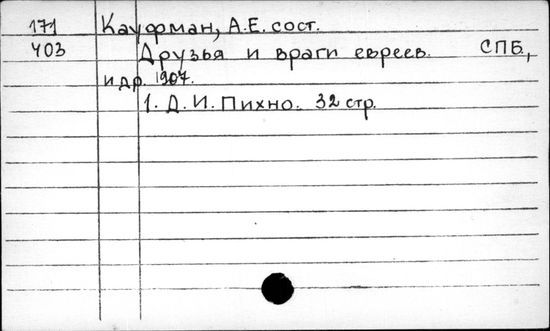 171 Кауфман, А.Е. сост.
403 Друзья и враги евреев. СПБ.,
и др. 1907.
1. Д. И. Пихно. 32 стр.